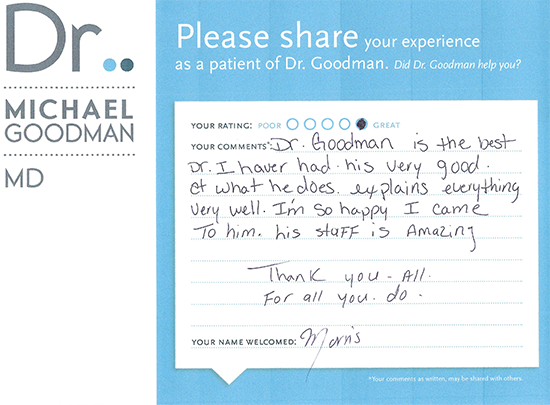 Dr..
MICHAEL
GOODMAN
MD
Please share your experience
as a patient of Dr. Goodman. Did Dr. Goodman help you?
YOUR RATING: POOR GREAT
YOUR COMMENTS*: Dr. Goodman is the best
Dr. I haver had. his very good.
at what he does. explains everything
very well. I'm so happy I came
To him. his staff is Amazing
Thank you - All.
For all you do.
YOUR NAME WELCOMED: Morris
*Your comments as written, may be shared with others.